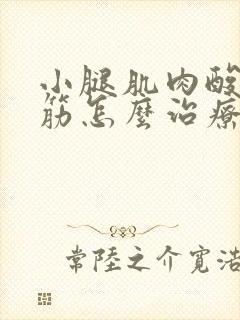 小腿肌肉酸
筋怎麼治療
常陸之介寬浩